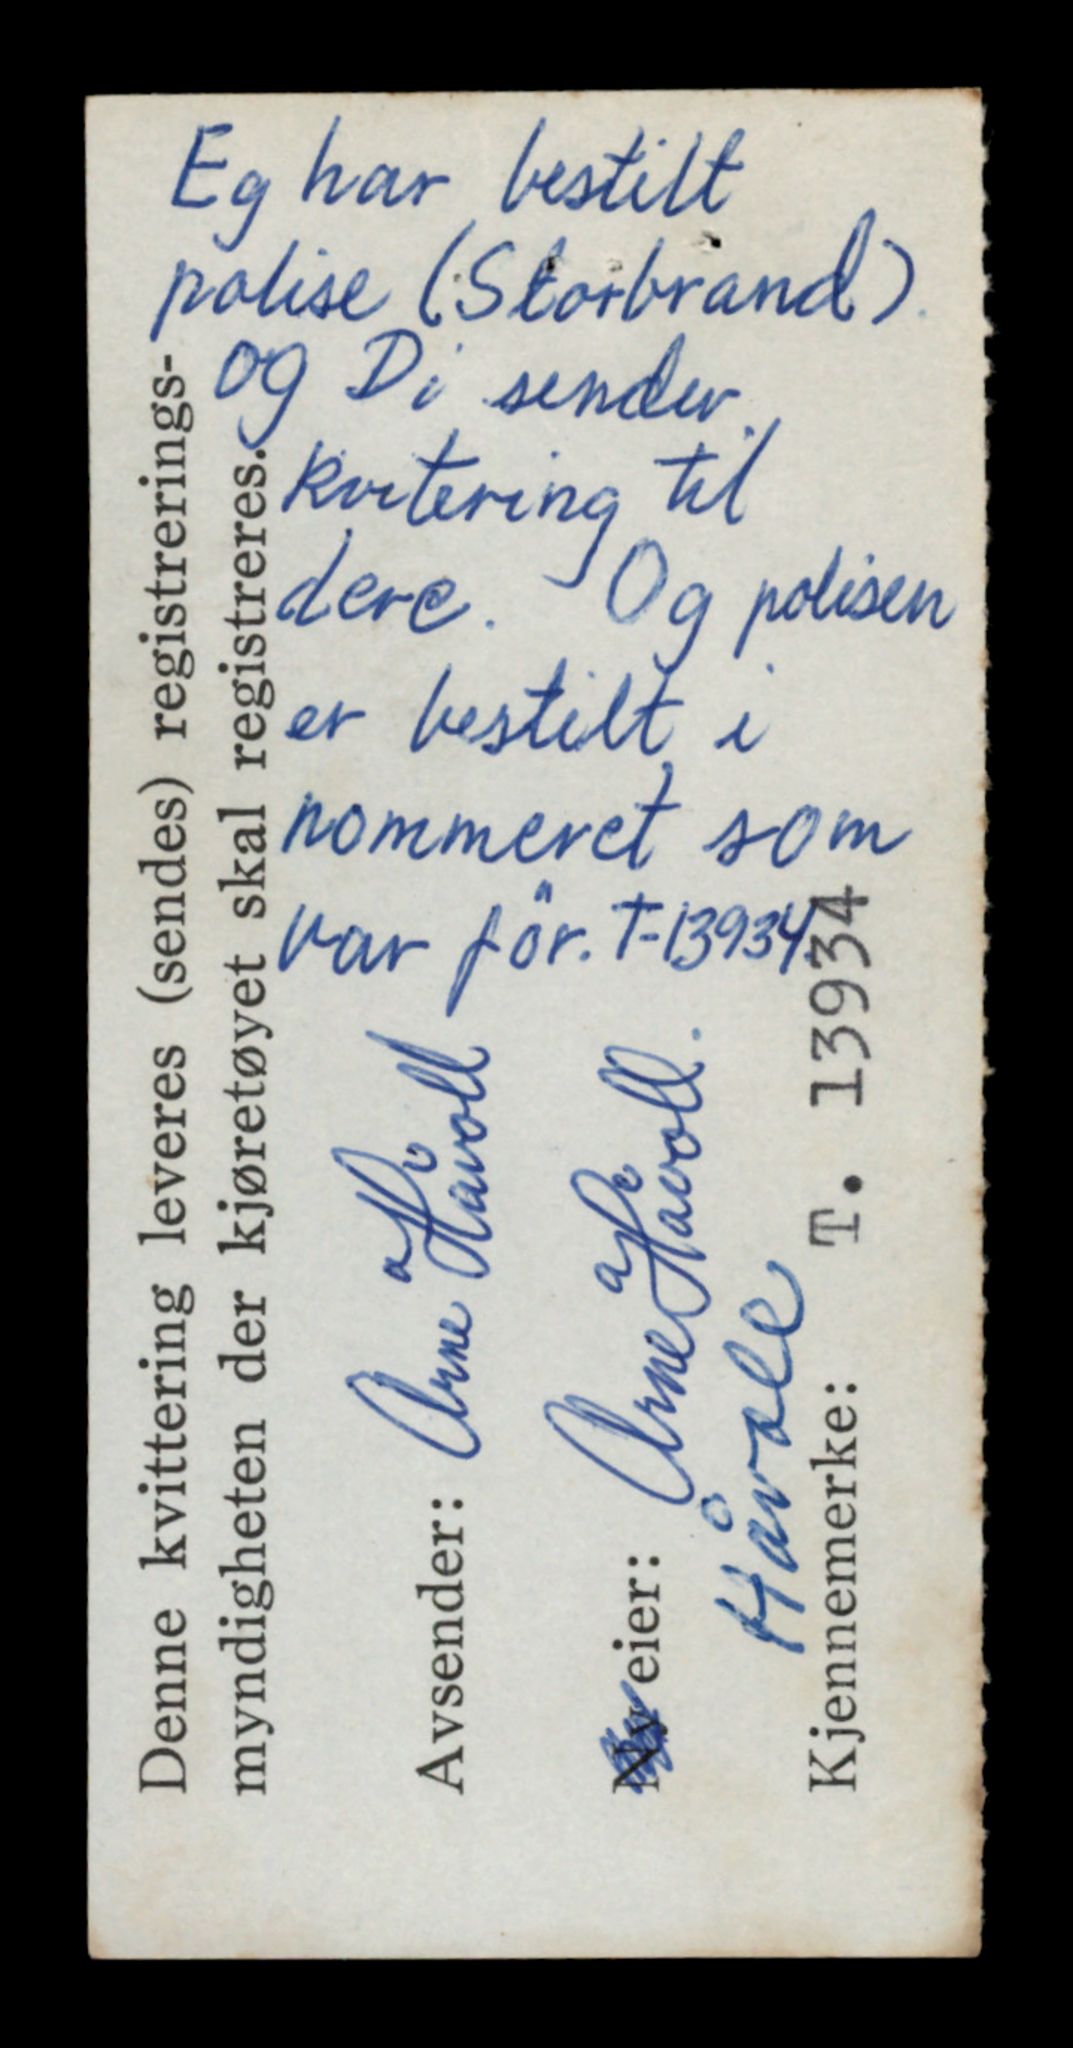 Eg har bestilt
polise (Storbrand).
og Di sender
kvitering til
dere. Og polisen
er bestilt i
nommeret som
var för. T-13934.
Denne kvittering leveres (sendes) registrerings-
myndigheten der kjøretøyet skal registreres.
Avsender: Arne a Håvoll
Ny eier: Arne a Håvoll.
Håvoll
Kjennemerke: T. 13934